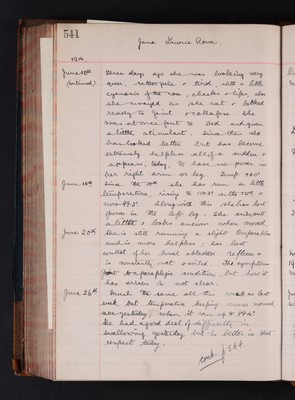 541
Jane Lawrie Rova.
1914.
June 10th three days ago she was looking very
(continued) queer, rather pale & tired with a little
cyanosis of the nose, cheeks & lips, also
she swayed as she sat & looked
ready to faint & collapse. She
was at once put to bed and given
a little stimulant. Since then she
has looked better but has become
extremely helpless all of a sudden it
appears, today, to have no power in
her right arm or leg. Temp
June 14th Since the 10th she has run a little
temperature, rising to 100.2° on the 12th &
now 99.2°. Along with this she has lost
power in the left leg. She
a little & looks anxious when moved
June 20th She is still running a slight temperature
and is more helpless; has lost
control of her bowel & bladder reflexes &
is constantly wet & soiled. The symptoms
point to a paraplegic condition, but how it
has arisen is not clear.
June 26th Much the same all this week as last
week, but temperature keeping more normal
save yesterday, when it ran up to 99.4°.
She had a good deal of difficulty in
swallowing yesterday but is better in that
respect today.
cont. p 544